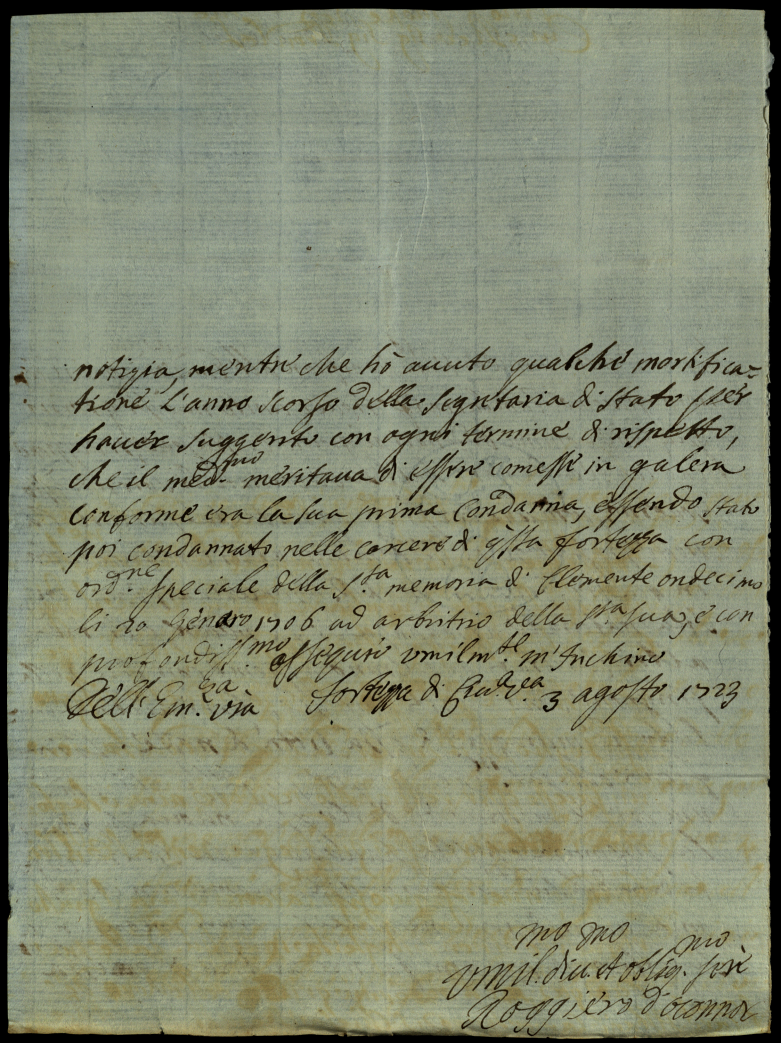 notizia, mentre che hò auuto qualche mortifica=
tione L'anno scorso della segretaria di stato per
hauer suggerito con ogni termine di rispetto,
che il med.mo meritaua di essere comesse in galera
conforme era la sua prima condanna, essendo stato
poi condannato nelle carcere di q̃sta fortezza con
ord.ne speciale della S.ta memoria di Clemente ondecimo
li 20 Genaro 1706 ad arbitrio della S.ta sua, e con
profondiss.mo ossequio vmilm.te m'Inchino
Dell'Em.za v̄r̄a fortezza di Ciu.a V.a 3 agosto 1723
vmil.mo diu.mo et oblig.mo ser.re
Roggiero d'oconnor